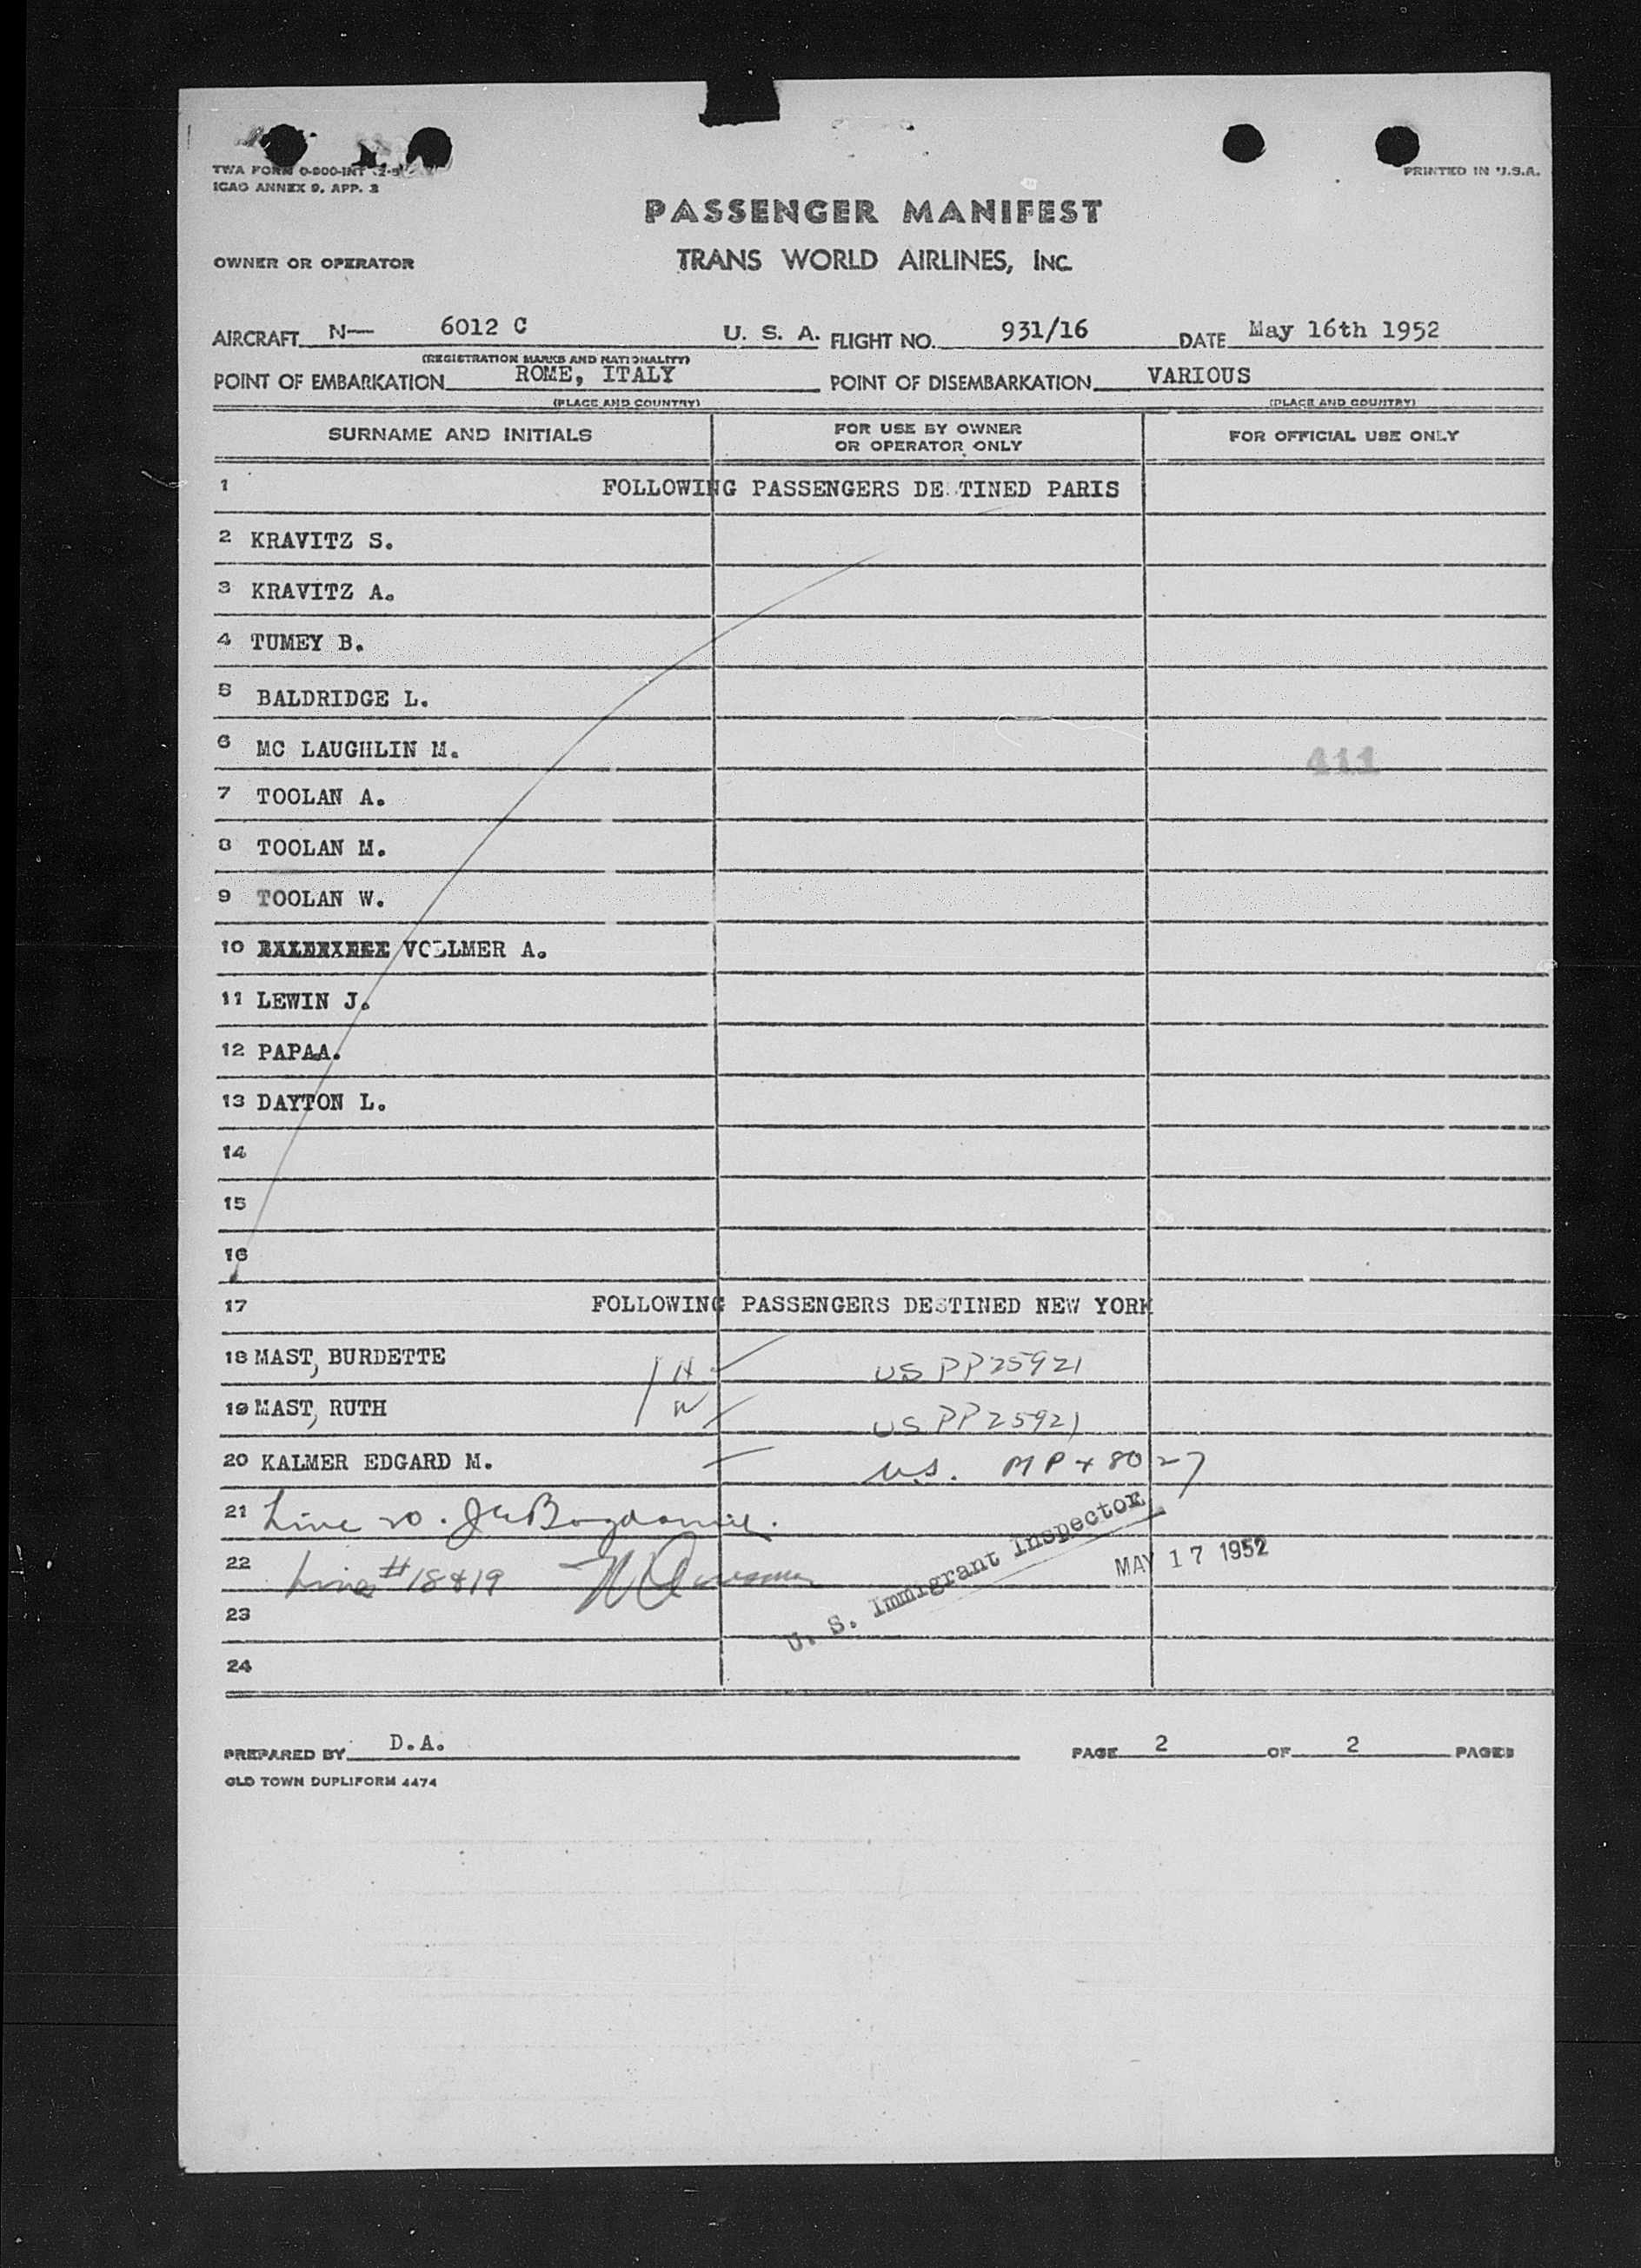 TWA FORM 0-800-INT
ICAO ANNEX 9, APP. 3
PRINTED IN U.S.A.
PASSENGER MANIFEST
OWNER OR OPERATOR TRANS WORLD AIRLINES, INC.
AIRCRAFT N— 6012 C U. S. A. FLIGHT NO. 931/16 DATE May 16th 1952
(REGISTRATION MARKS AND NATIONALITY)
POINT OF EMBARKATION ROME, ITALY POINT OF DISEMBARKATION VARIOUS
(PLACE AND COUNTRY) (PLACE AND COUNTRY)
SURNAME AND INITIALS FOR USE BY OWNER OR OPERATOR ONLY FOR OFFICIAL USE ONLY
1 FOLLOWING PASSENGERS DE TINED PARIS
2 KRAVITZ S.
3 KRAVITZ A.
4 TUMEY B.
5 BALDRIDGE L.
6 MC LAUGHLIN M.
411
7 TOOLAN A.
8 TOOLAN M.
9 TOOLAN W.
10 VOLLMER A.
11 LEWIN J.
12 PAPAA.
13 DAYTON L.
14
15
16
17 FOLLOWING PASSENGERS DESTINED NEW YORK
18 MAST, BURDETTE H US PP25921
19 MAST, RUTH W US PP25921
20 KALMER EDGARD M. U.S. MP+8027
21 Line 20.
22 Lines #18&19
U. S. Immigrant Inspector
MAY 17 1952
23
24
PREPARED BY D.A. PAGE 2 OF 2 PAGES
OLD TOWN DUPLIFORM 4474